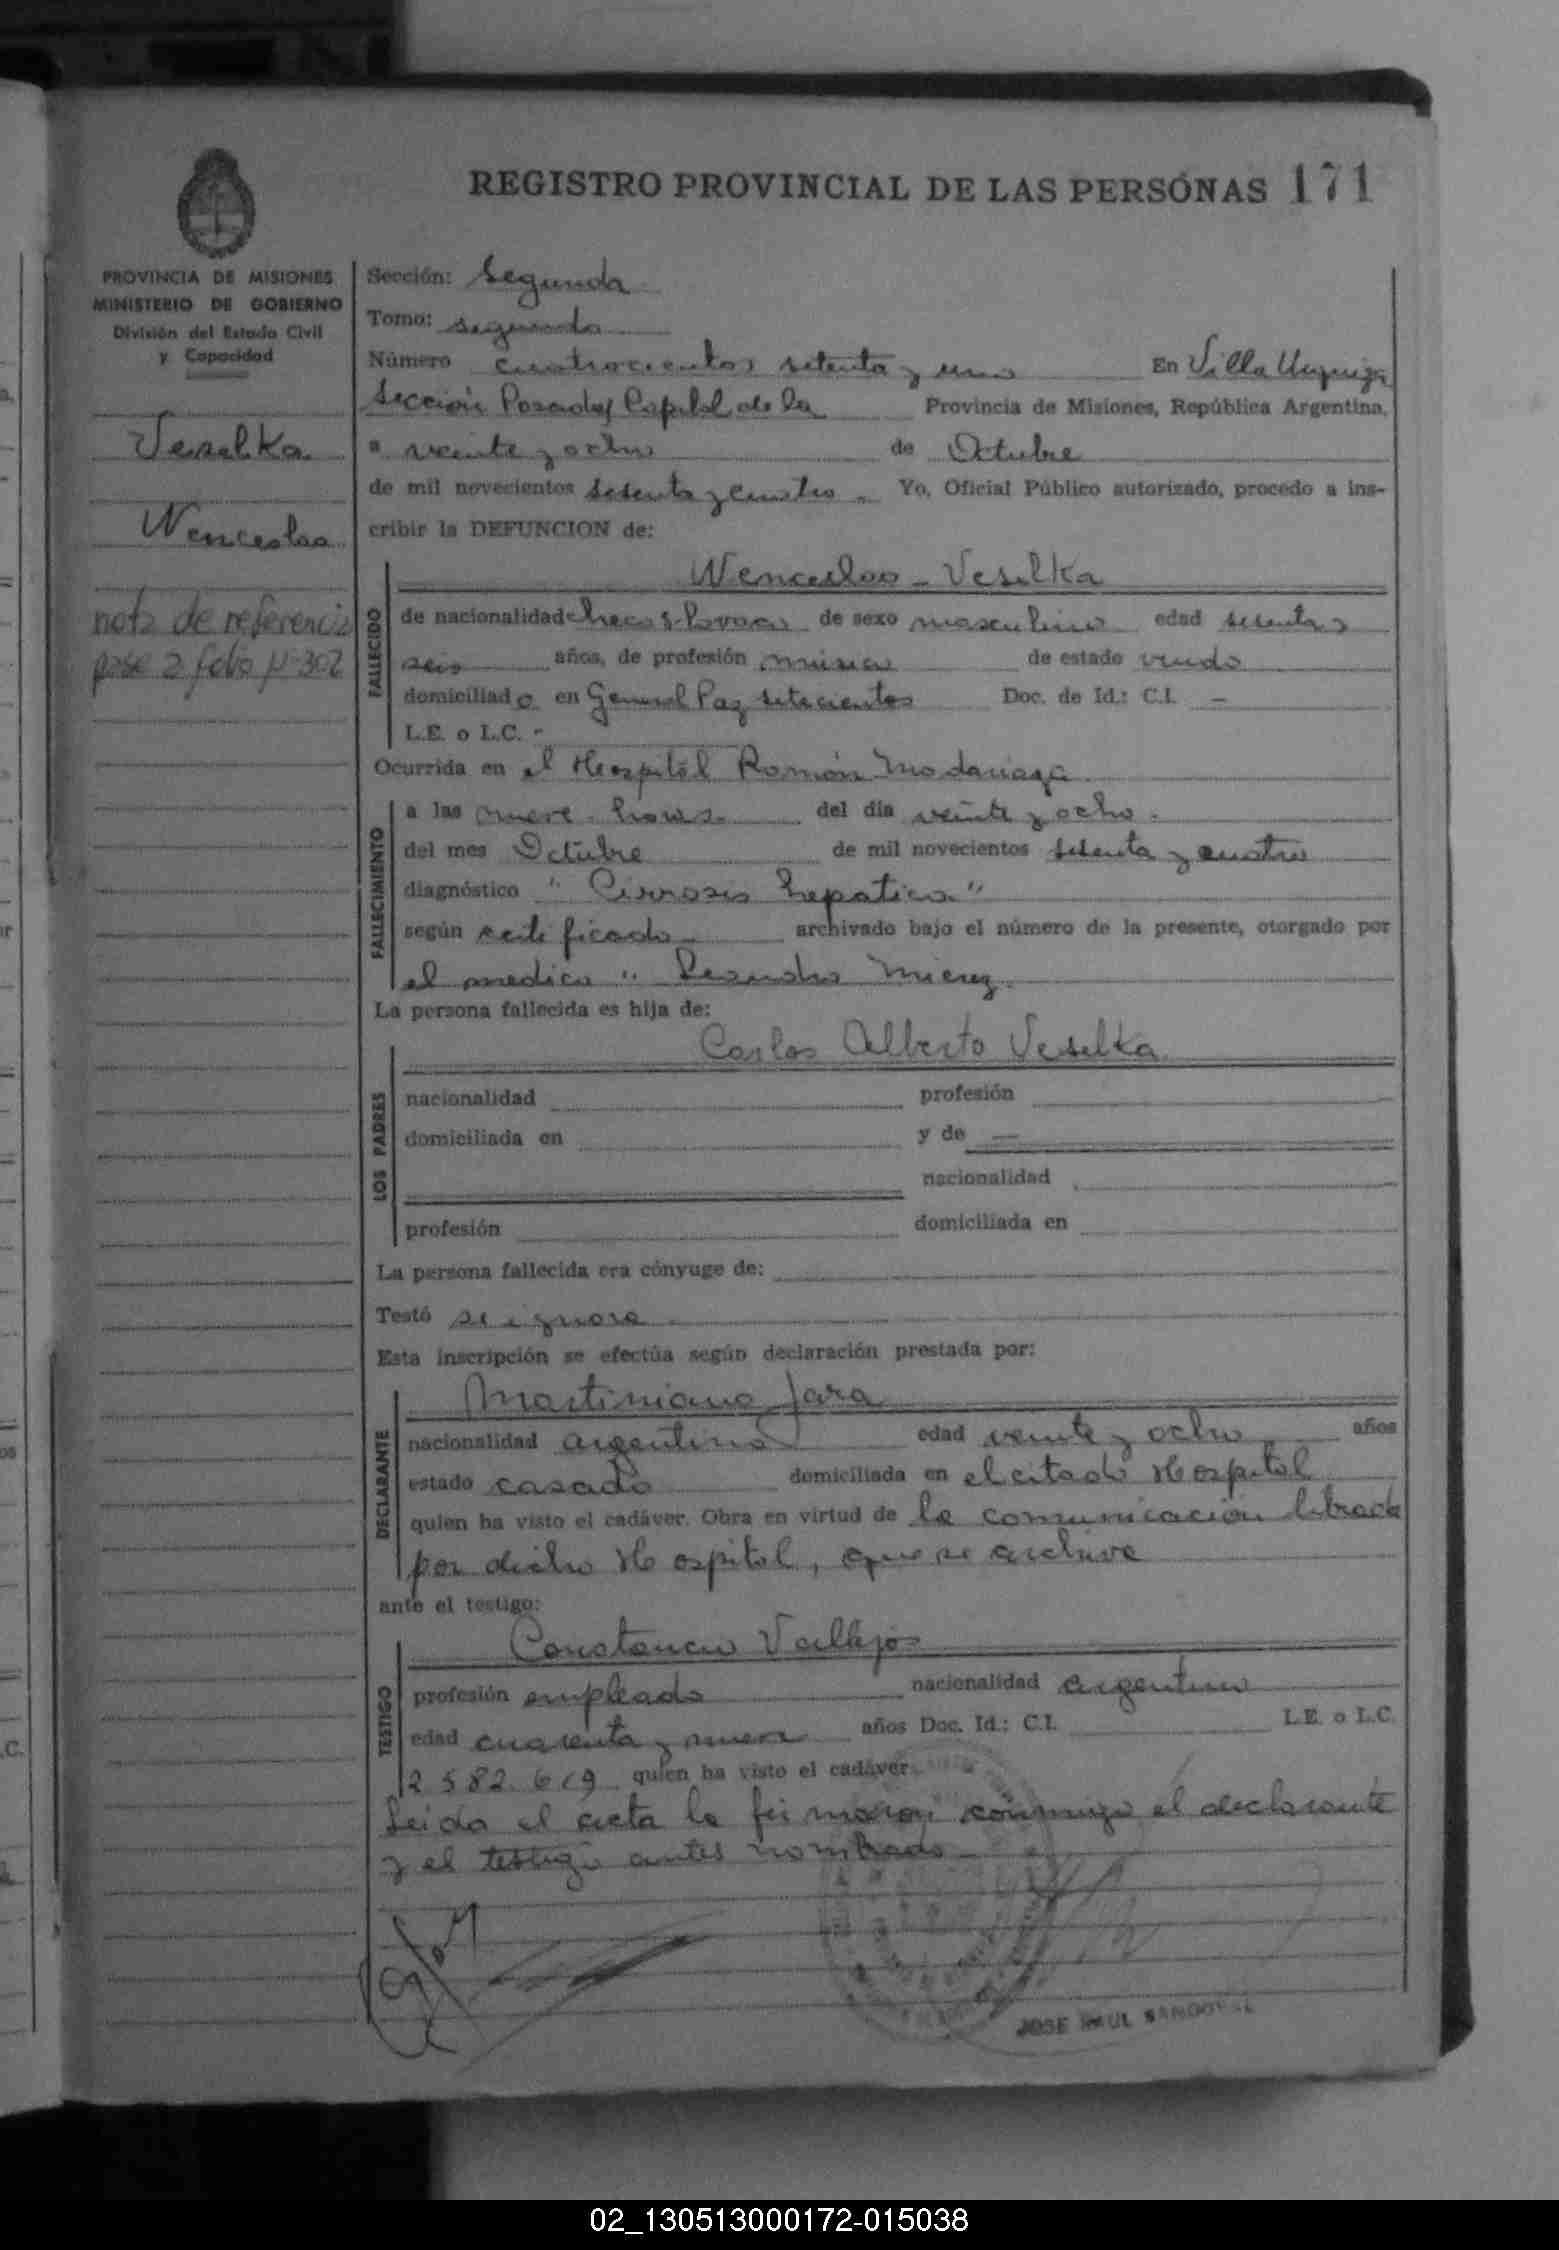 REGISTRO PROVINCIAL DE LAS PERSONAS 171
PROVINCIA DE MISIONES
MINISTERIO DE GOBIERNO
División del Estado Civil
y Capacidad
Veselka
Wenceslao
nota de referencia
pase a folio Nº 302
Sección: Segunda
Tomo: segundo
Número cuatrocientos setenta y uno En Villa Urquiza
Sección Posadas Capital de la Provincia de Misiones, República Argentina,
a veinte y ocho de Octubre
de mil novecientos sesenta y cuatro. Yo, Oficial Público autorizado, procedo a ins-
cribir la DEFUNCION de:
Wenceslao - Veselka
FALLECIDO
de nacionalidad checoslovaco de sexo masculino edad sesenta y
seis años, de profesión músico de estado viudo
domiciliado en General Paz setecientos Doc. de Id.: C.I. -
L.E. o L.C. -
Ocurrida en el Hospital Ramón Madariaga
FALLECIMIENTO
a las nueve horas. del día veinte y ocho.
del mes Octubre de mil novecientos sesenta y cuatro
diagnóstico " Cirrosis hepatica"
según certificado archivado bajo el número de la presente, otorgado por
el medico " Leandro
La persona fallecida es hija de:
Carlos Alberto Veselka
LOS PADRES
nacionalidad profesión
domiciliada en y de —
nacionalidad
profesión domiciliada en
La persona fallecida era cónyuge de:
Testó se ignora
Esta inscripción se efectúa según declaración prestada por:
Martiniano Jara
DECLARANTE
nacionalidad argentino edad veinte y ocho años
estado casado domiciliada en el citado Hospital
quien ha visto el cadáver. Obra en virtud de la comunicación librada
por dicho Hospital, que se archiva
ante el testigo:
Constancio Vallejos
TESTIGO
profesión empleado nacionalidad argentino
edad cuarenta y nueve años Doc. Id.: C.I. L.E. o L.C.
2582.619 quien ha visto el cadáver.
Leida el acta la firmaron conmigo el declarante
y el testigo antes nombrado
JOSE RAUL SANDOVAL
02_130513000172-015038